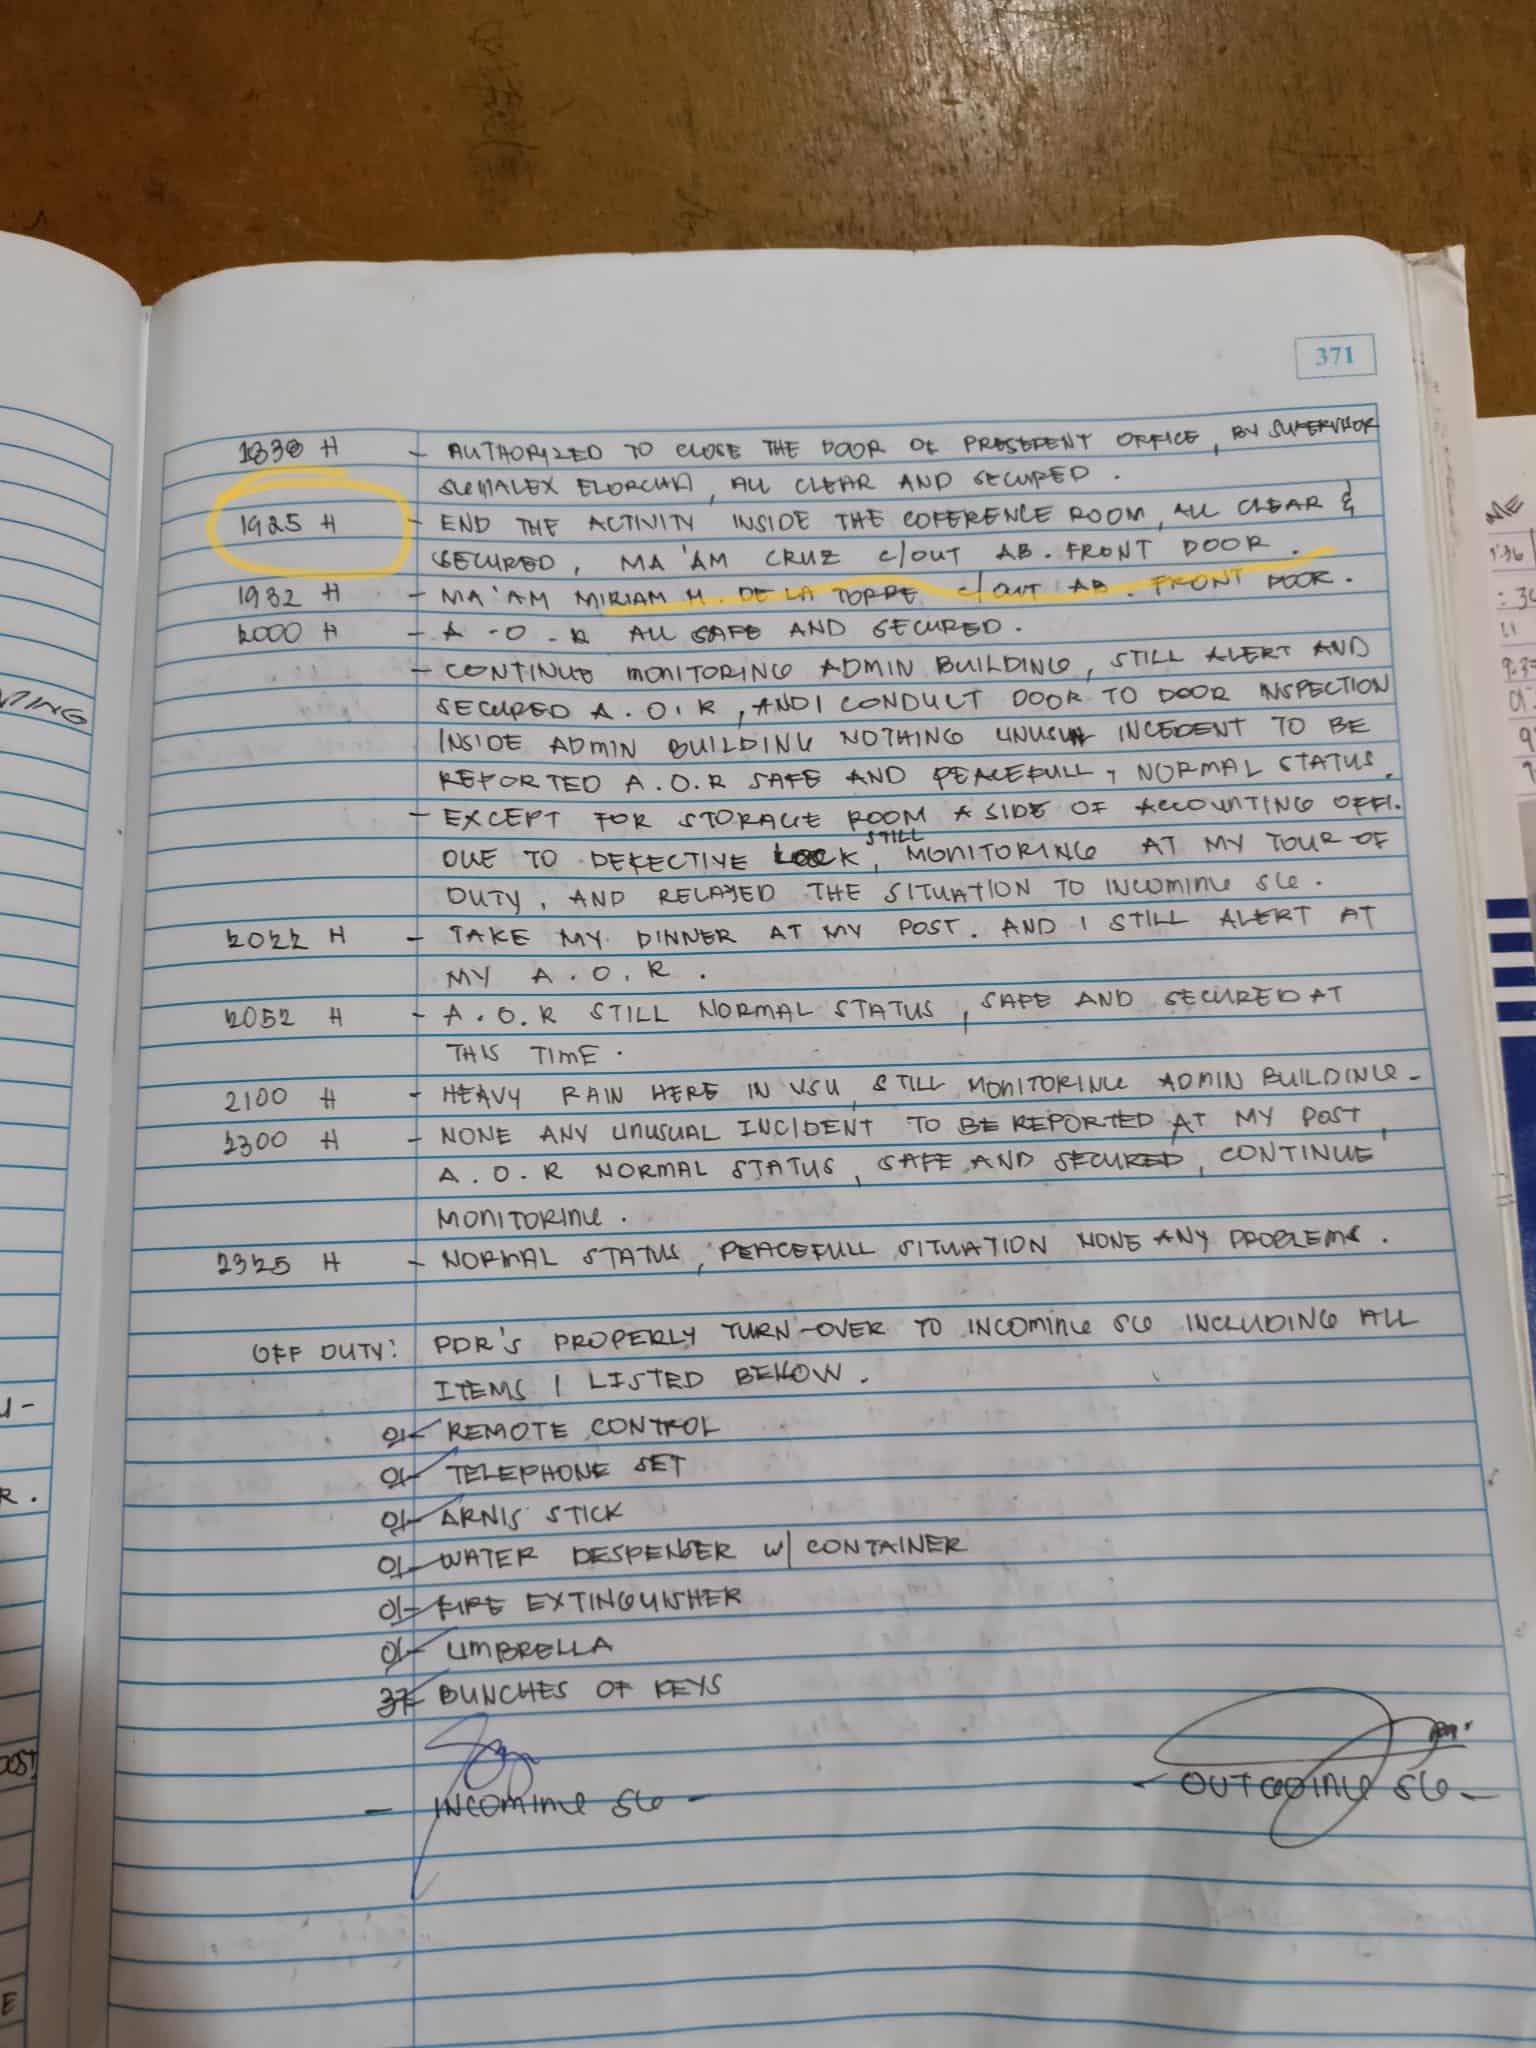 371
1838 H - AUTHORIZED TO CLOSE THE DOOR OF PRESEDENT OFFICE, BY SUPERVISOR
ALL CLEAR AND SECURED.
1925 H - END THE ACTIVITY INSIDE THE COFERENCE ROOM, ALL CLEAR &
SECURED, MA'AM CRUZ c/OUT AB. FRONT DOOR.
1932 H - MA'AM MIRIAM M. DE LA TORRE c/OUT AB. FRONT DOOR.
2000 H - A.O.R ALL SAFE AND SECURED.
- CONTINUE MONITORING ADMIN BUILDING, STILL ALERT AND
SECURED A.O.R, AND I CONDUCT DOOR TO DOOR INSPECTION
INSIDE ADMIN BUILDING NOTHING UNUSUAL INCEDENT TO BE
REPORTED A.O.R SAFE AND PEACEFULL, NORMAL STATUS.
- EXCEPT FOR STORAGE ROOM A SIDE OF ACCOUNTING OFFI.
DUE TO DEFECTIVE LOCK, STILL MONITORING AT MY TOUR OF
DUTY, AND RELAYED THE SITUATION TO INCOMING SG.
2022 H - TAKE MY DINNER AT MY POST. AND I STILL ALERT AT
MY A.O.R.
2052 H - A.O.R STILL NORMAL STATUS, SAFE AND SECURED AT
THIS TIME.
2100 H - HEAVY RAIN HERE IN VSU, STILL MONITORING ADMIN BUILDING-
2300 H - NONE ANY UNUSUAL INCIDENT TO BE REPORTED AT MY POST,
A.O.R NORMAL STATUS, SAFE AND SECURED, CONTINUE
MONITORING.
2325 H - NORMAL STATUS, PEACEFULL SITUATION NONE ANY PROBLEMS.
OFF DUTY: PDR'S PROPERLY TURN-OVER TO INCOMING SG INCLUDING ALL
ITEMS I LISTED BELLOW.
01- REMOTE CONTROL
01- TELEPHONE SET
01- ARNIS STICK
01- WATER DESPENSER W/ CONTAINER
01- FIRE EXTINGUISHER
01- UMBRELLA
37- BUNCHES OF KEYS
- INCOMING SG -
- OUTGOING SG -